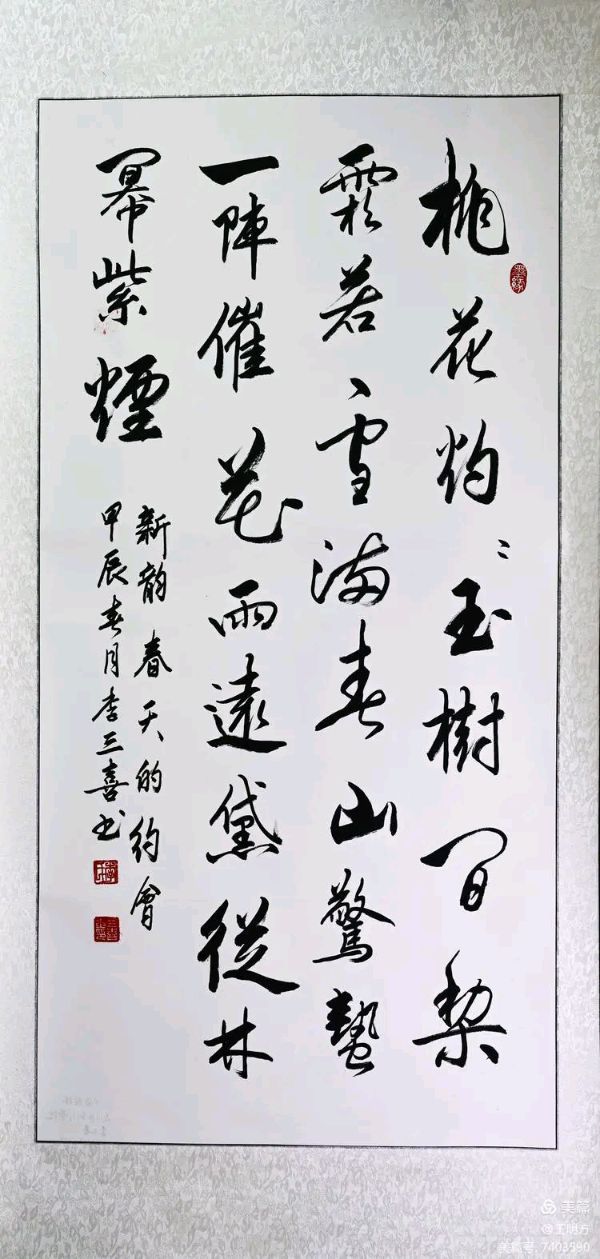 桃花灼〻玉樹間梨
若雪满春山驚蟄
一陣催花雨遠黛從林
冪紫煙
新韵春天的约會
甲辰春月李三喜书
美篇
美篇号 7403990